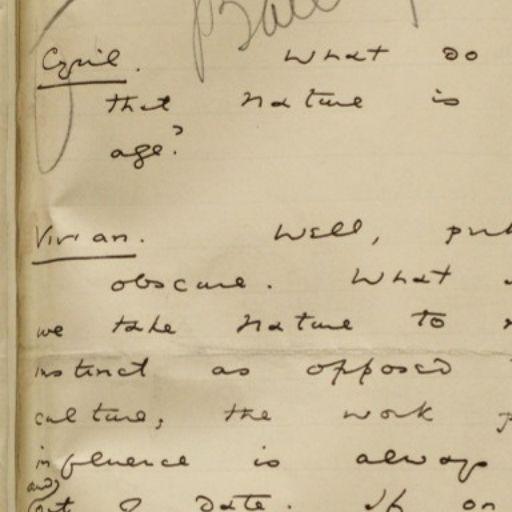 Cyril. What do
that Nature is
age?
Vivian. Well,
obscure. What
we take Nature to
instinct as opposed
culture, the work
influence is always
and
out of date. If on